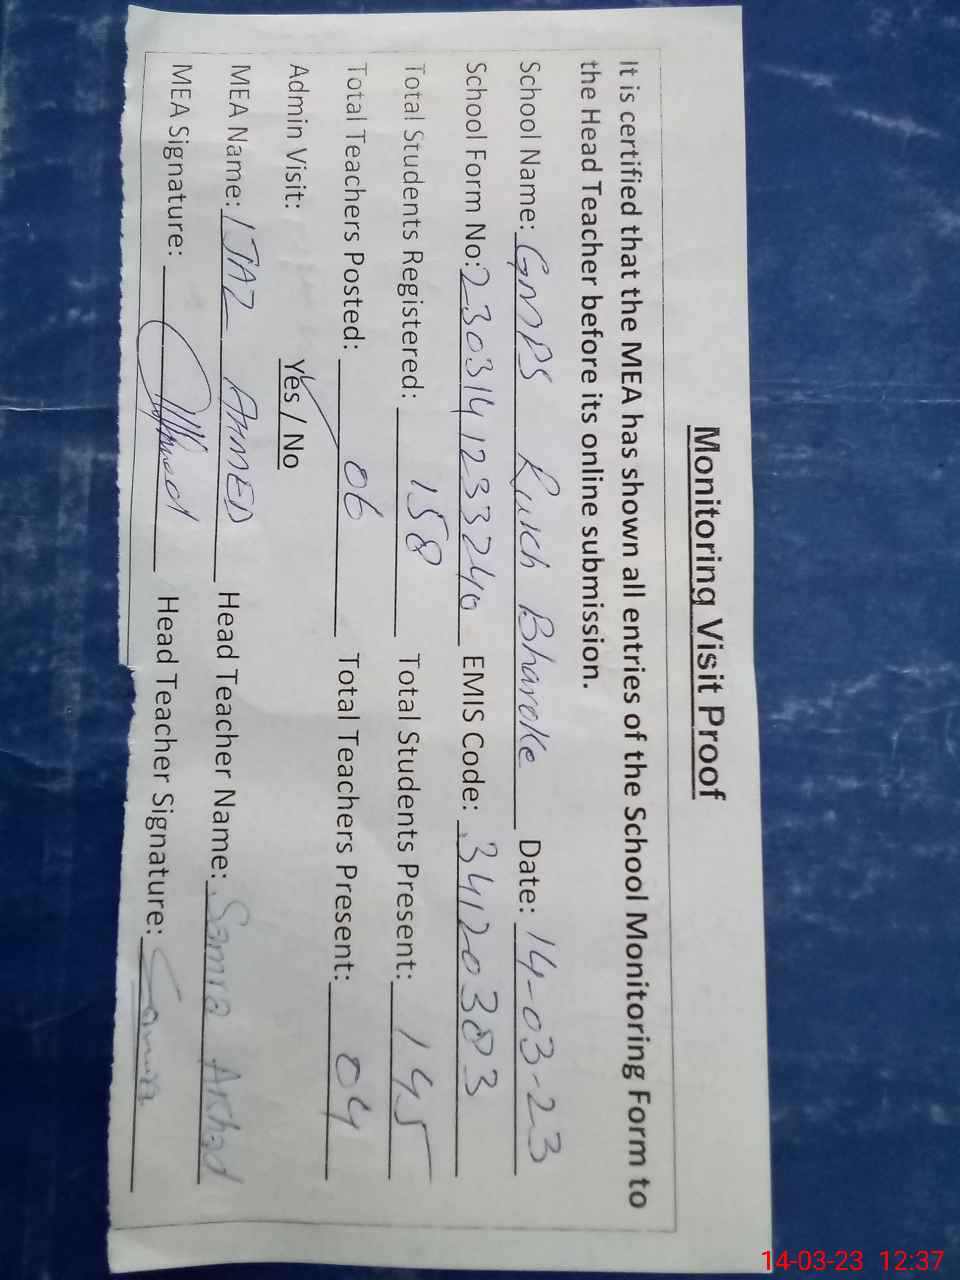 Monitoring Visit Proof
It is certified that the MEA has shown all entries of the School Monitoring Form to
the Head Teacher before its online submission.
School Name: GMPS Rukh Bharoke Date: 14-03-23
School Form No: 2303141233240 EMIS Code: 34120383
Total Students Registered: 158 Total Students Present: 145
Total Teachers Posted: 06 Total Teachers Present: 04
Admin Visit: Yes / No
MEA Name: IJAZ AHMED Head Teacher Name: Samra Arshad
MEA Signature: Head Teacher Signature: Samra
14-03-23 12:37